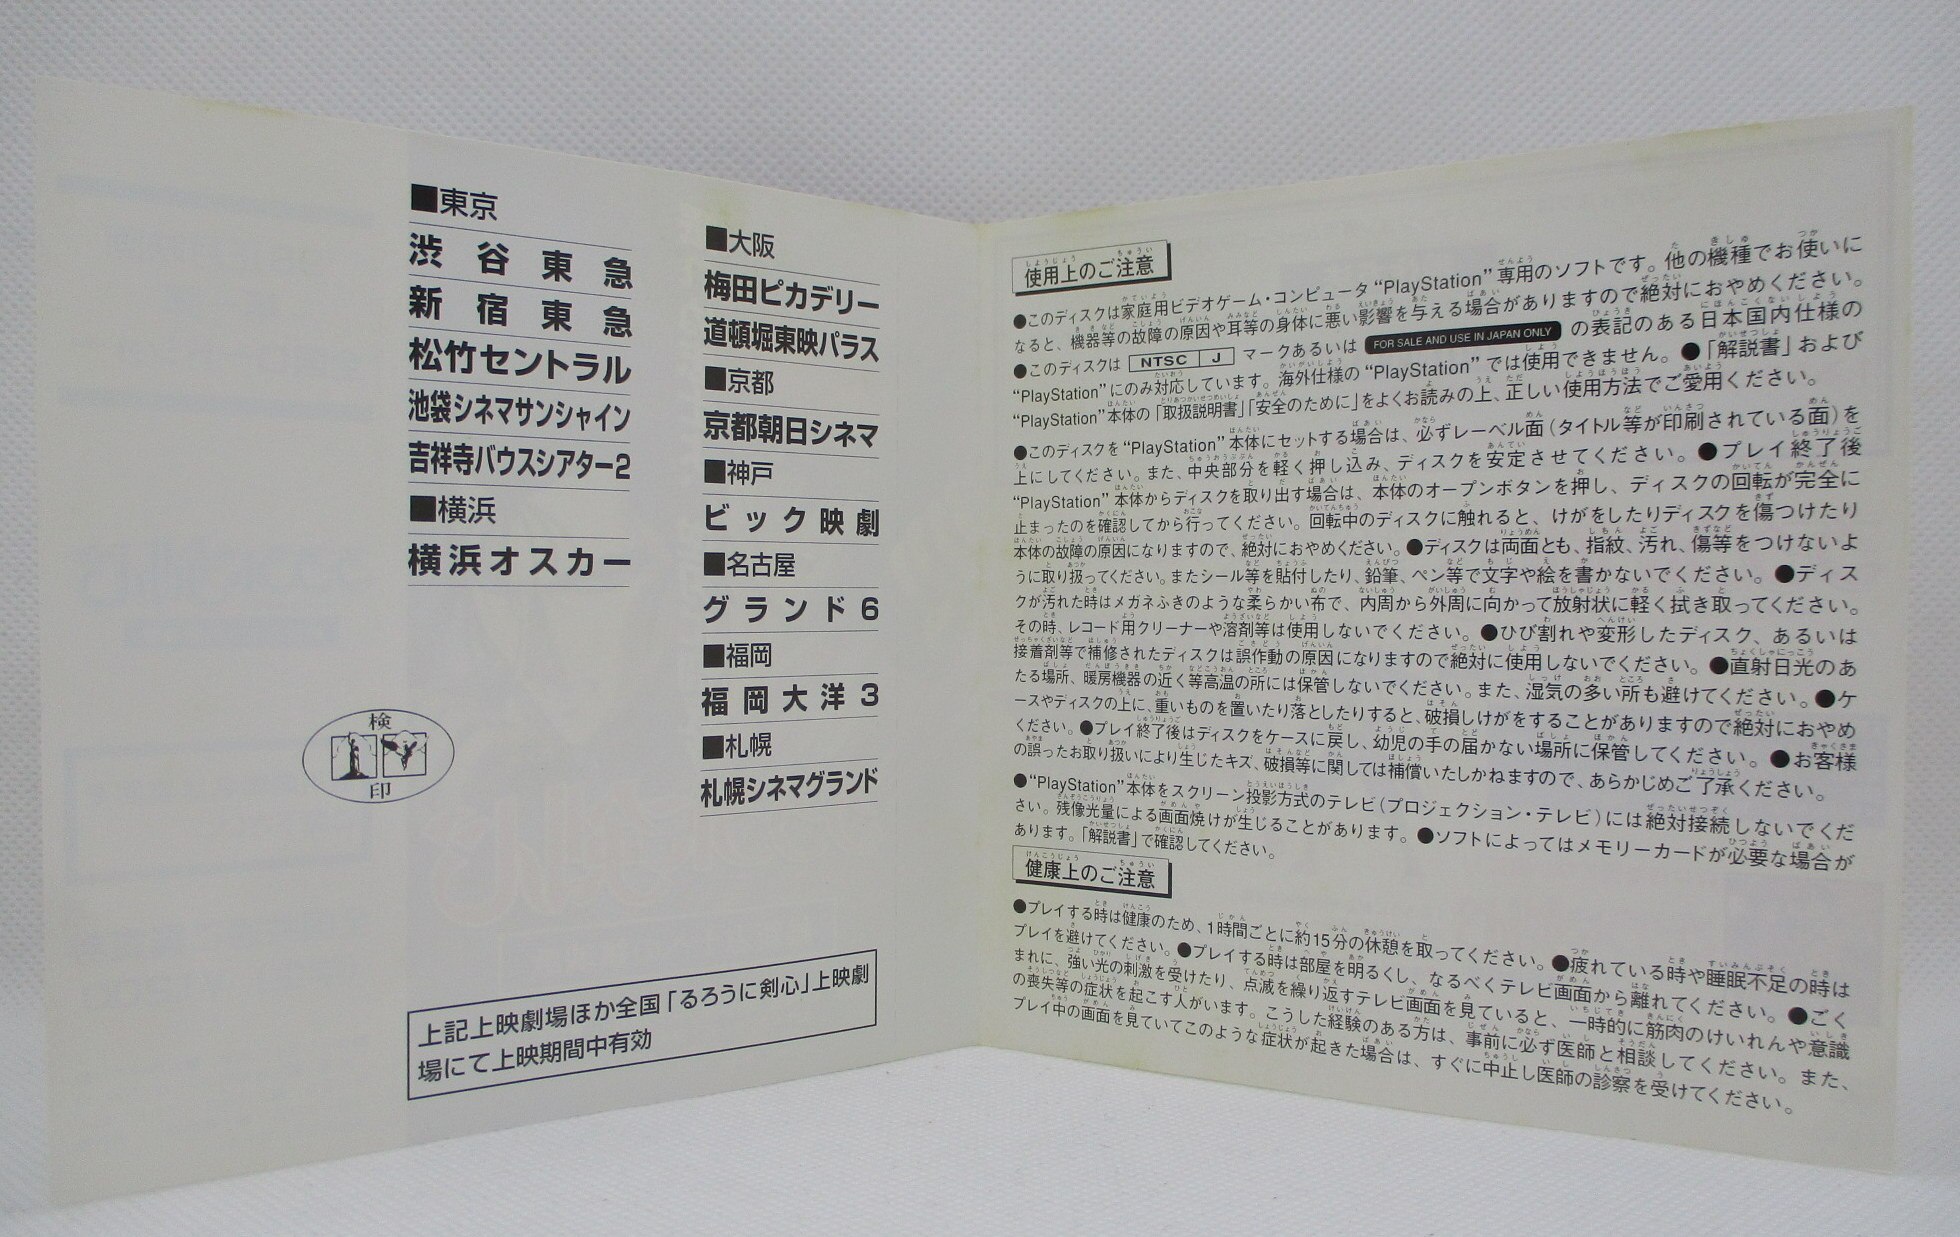 ■東京
渋谷東急
新宿東急
松竹セントラル
池袋シネマサンシャイン
吉祥寺バウスシアター2
■横浜
横浜オスカー
■大阪
梅田ピカデリー
道頓堀東映パラス
■京都
京都朝日シネマ
■神戸
ビック映劇
■名古屋
グランド6
■福岡
福岡大洋3
■札幌
札幌シネマグランド
検
印
上記上映劇場ほか全国「るろうに剣心」上映劇
場にて上映期間中有効
使用上のご注意
●このディスクは家庭用ビデオゲーム・コンピュータ“PlayStation”専用のソフトです。他の機種でお使いに
なると、機器等の故障の原因や耳等の身体に悪い影響を与える場合がありますので絶対におやめください。
●このディスクは NTSC J マークあるいは FOR SALE AND USE IN JAPAN ONLY の表記のある日本国内仕様の
“PlayStation”にのみ対応しています。海外仕様の“PlayStation”では使用できません。●「解説書」および
“PlayStation”本体の「取扱説明書」「安全のために」をよくお読みの上、正しい使用方法でご愛用ください。
●このディスクを“PlayStation”本体にセットする場合は、必ずレーベル面(タイトル等が印刷されている面)を
上にしてください。また、中央部分を軽く押し込み、ディスクを安定させてください。●プレイ終了後
“PlayStation”本体からディスクを取り出す場合は、本体のオープンボタンを押し、ディスクの回転が完全に
止まったのを確認してから行ってください。回転中のディスクに触れると、けがをしたりディスクを傷つけたり
本体の故障の原因になりますので、絶対におやめください。●ディスクは両面とも、指紋、汚れ、傷等をつけないよ
うに取り扱ってください。またシール等を貼付したり、鉛筆、ペン等で文字や絵を書かないでください。●ディス
クが汚れた時はメガネふきのような柔らかい布で、内周から外周に向かって放射状に軽く拭き取ってください。
その時、レコード用クリーナーや溶剤等は使用しないでください。●ひび割れや変形したディスク、あるいは
接着剤等で補修されたディスクは誤作動の原因になりますので絶対に使用しないでください。●直射日光のあ
たる場所、暖房機器の近く等高温の所には保管しないでください。また、湿気の多い所も避けてください。●ケ
ースやディスクの上に、重いものを置いたり落としたりすると、破損しけがをすることがありますので絶対におやめ
ください。●プレイ終了後はディスクをケースに戻し、幼児の手の届かない場所に保管してください。●お客様
の誤ったお取り扱いにより生じたキズ、破損等に関しては補償いたしかねますので、あらかじめご了承ください。
●“PlayStation”本体をスクリーン投影方式のテレビ(プロジェクション・テレビ)には絶対接続しないでくだ
さい。残像光量による画面焼けが生じることがあります。●ソフトによってはメモリーカードが必要な場合が
あります。「解説書」で確認してください。
健康上のご注意
●プレイする時は健康のため、1時間ごとに約15分の休憩を取ってください。●疲れている時や睡眠不足の時は
プレイを避けてください。●プレイする時は部屋を明るくし、なるべくテレビ画面から離れてください。●ごく
まれに、強い光の刺激を受けたり、点滅を繰り返すテレビ画面を見ていると、一時的に筋肉のけいれんや意識
の喪失等の症状を起こす人がいます。こうした経験のある方は、事前に必ず医師と相談してください。また、
プレイ中の画面を見ていてこのような症状が起きた場合は、すぐに中止し医師の診察を受けてください。